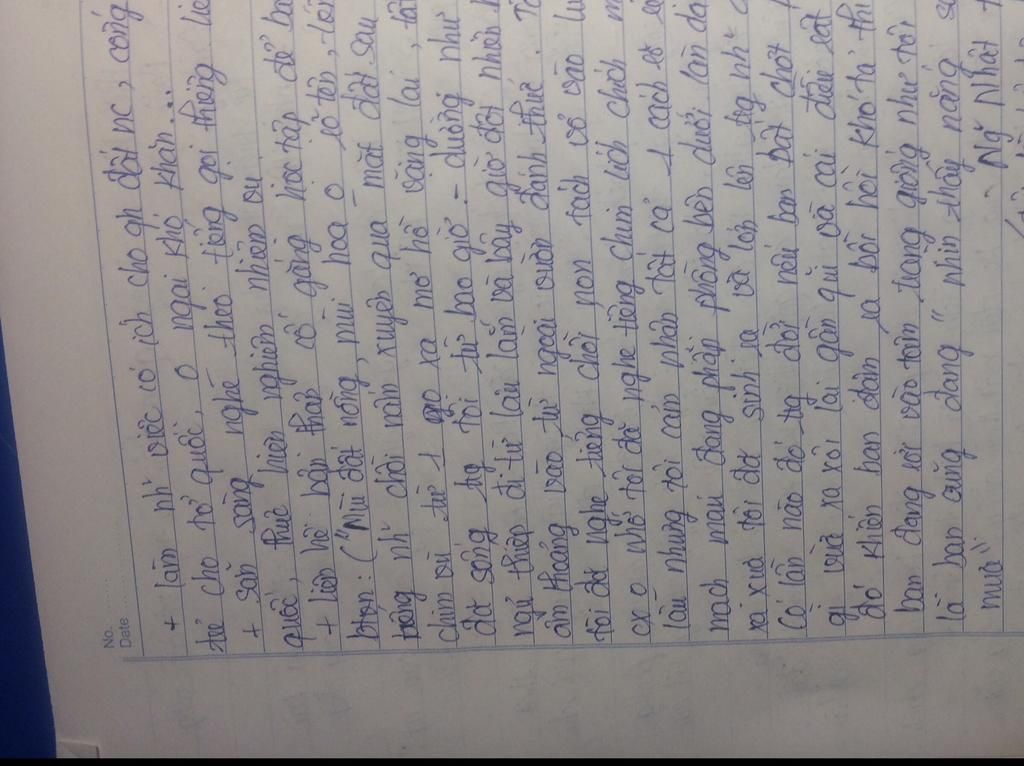 No.
Date
+ làm nh~ việc có ích cho qh đất nc, cộng
thể cho tổ quốc, o ngại khó khăn...
+ sẵn sàng nghe theo tiếng gọi thiêng liê
quốc, thực hiện nghiêm nhiệm vụ
+ liên hệ bản thân cố gắng học tập để ba
btơn: ("Mùi đất nồng, mùi hoa o rõ tên,
nh~ chồi nón xuyên qua mặt đất sau
chim vì từ 1 xa mơ hồ vẳng lại, tấ
đất sống tg tôi từ bao giờ - dường như
ngủ thiếp đi từ lâu lắm và bây giờ đột nhiên
ẩm thoảng vào từ ngoài vườn đánh thức. Tô
Tôi đã nghe tiếng chồi non tách vỏ vào lú
cx o nhớ tôi đã nghe tiếng chim lích chích m
lâu nhưng tôi cảm nhận tất cả 1 cách rõ
mạch máu đang phập phồng bên dưới làn da
xa xưa tôi đã sinh ra và lớn lên tg nh~
Có lần nào đó tg đời nếu bạn bất chợt
gì vừa xa xôi lại gần gũi và cái điều rất
đó khiến bạn đắm và bồi hồi khó tả thì
bạn đang rơi vào tâm trạng giống như tôi
là bạn cũng đang " nhìn thấy nắng s
mưa"
- Ng~ Nhật